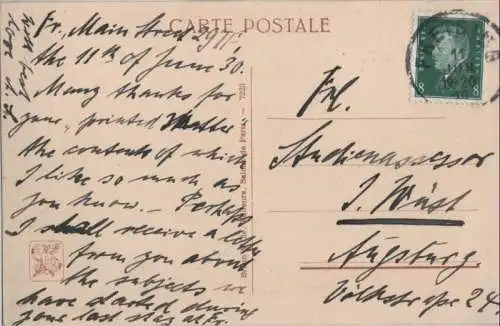 CARTE POSTALE
Fr, Main Street 29 III
the 11th of June 30.
Many thanks for
your "printed Matter"
the contents of which
I like so much as
you know. — Perhaps
I shall receive a letter
from you about
the subjects we
have started during
your last stay
7223
8 8
Frl.
Studienassessor
J. Wüst
Augsburg
Völkstraße 24